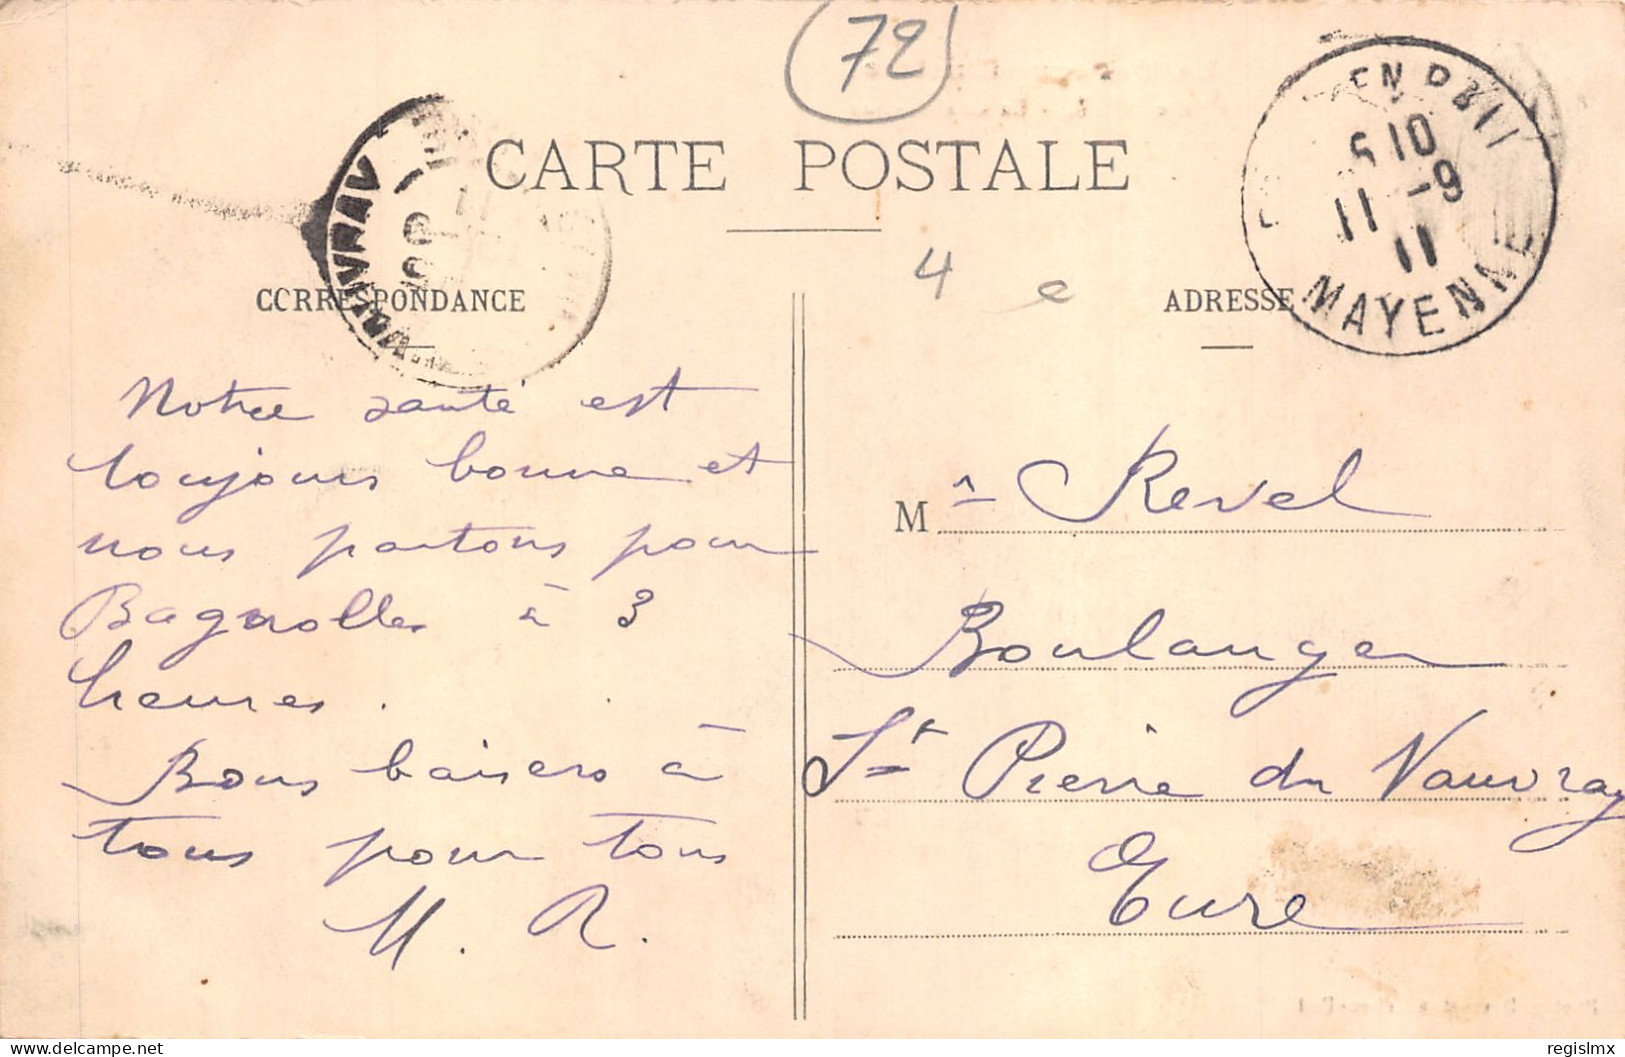 72
CARTE POSTALE
10
11 -9
11
MAYENNE
4 e
CORRESPONDANCE
ADRESSE
Notre santé est
toujours bonne et
nous partons pour
Bagnolles à 3
heures.
Bons baisers à
tous pour tous
M. R.
Mr Revel
Boulanger
St Pierre du Vauvray
Eure
Delcampe.net
regislmx